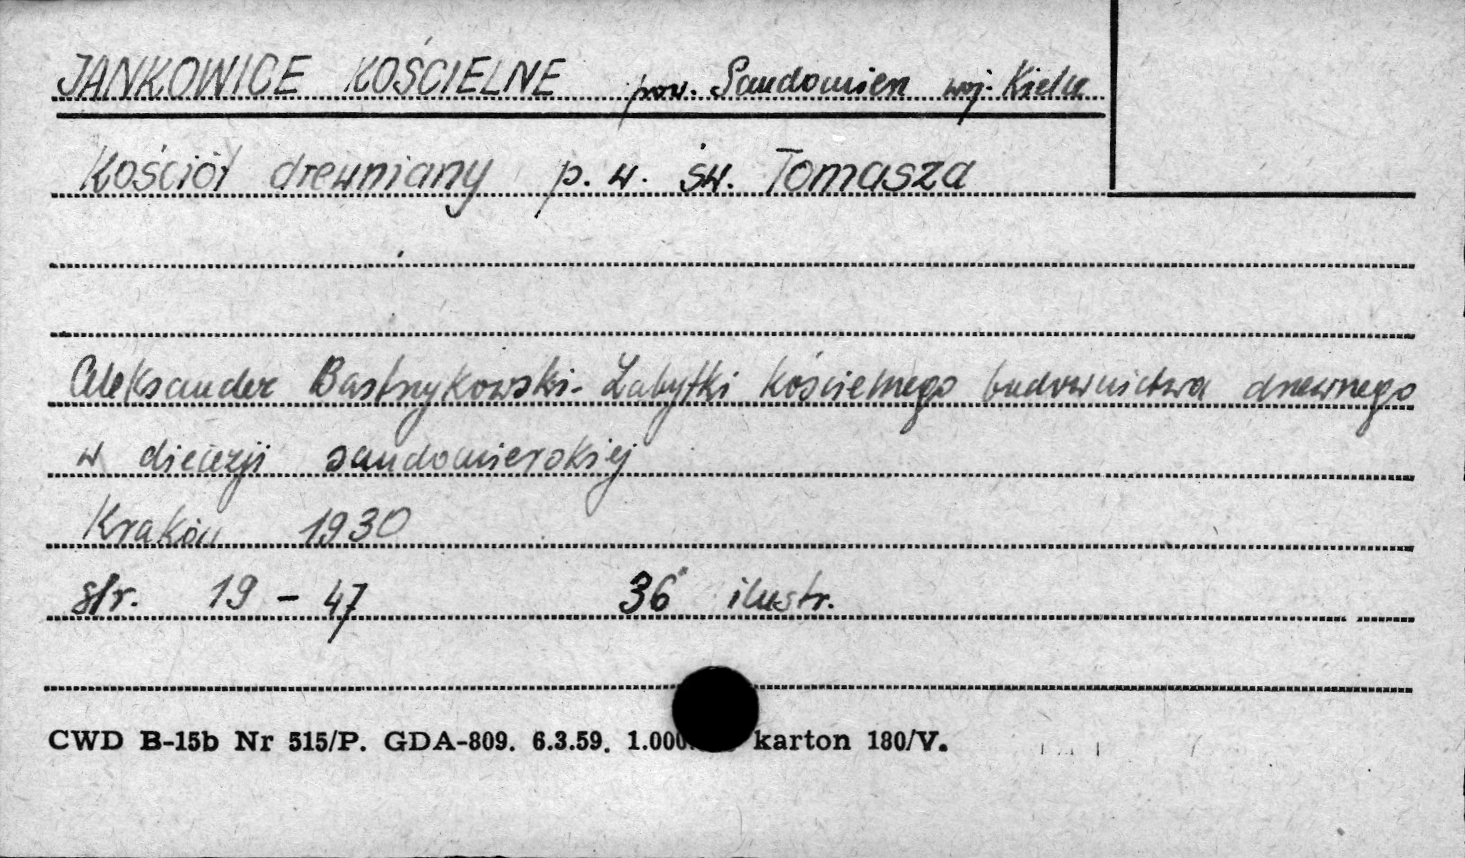 JANKOWICE KOŚCIELNE pow. Sandomierz woj. Kielce
Kościół drewniany p.w. św. Tomasza
Aleksander Bastrzykowski - Zabytki kościelnego budownictwa drewnego
w diecezji sandomierskiej
Kraków 1930
str. 19 - 47 36 ilustr.
CWD B-15b Nr 515/P. GDA-809. 6.3.59. 1.000 karton 180/V.